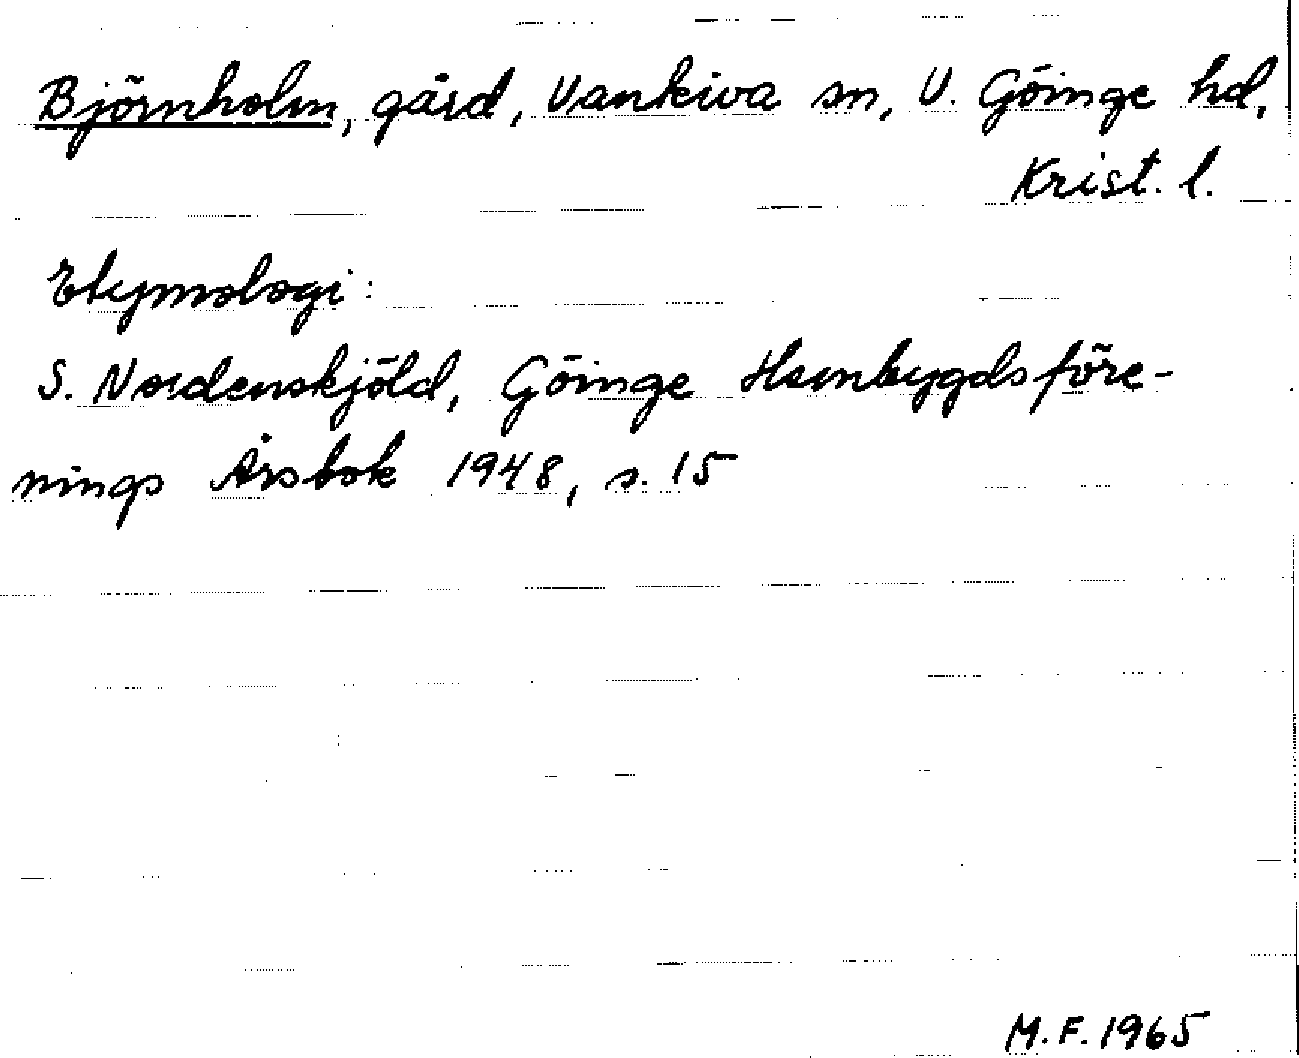 Björnholm, gård, Vankiva sn, V. Göinge hd,
Krist. l.
Etymologi:
S. Nordenskjöld, Göinge Hembygdsföre-
nings Årsbok 1948, s. 15
M.F. 1965